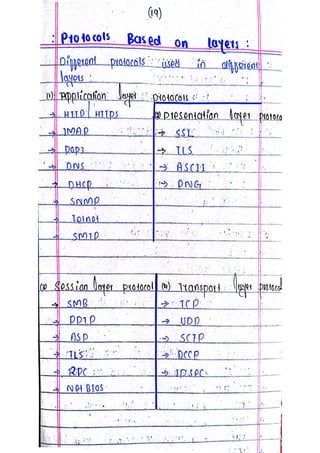 (19)
: Protocols Based on layers :
Different protocols used in different
layers :
(1) Application layer protocols :
→ HTTP / HTTPS
→ IMAP
→ POP3
→ DNS
→ DHCP
→ SNMP
→ Telnet
→ SMTP
(2) Presentation layer protoco
→ SSL
→ TLS
→ ASCII
→ PNG
Session layer protocol
→ SMB
→ PPTP
→ ASP
→ TLS
→ RPC
→ Net BIOS
(4) Transport layer protocol
→ TCP
→ UDP
→ SCTP
→ DCCP
→ IPSPC